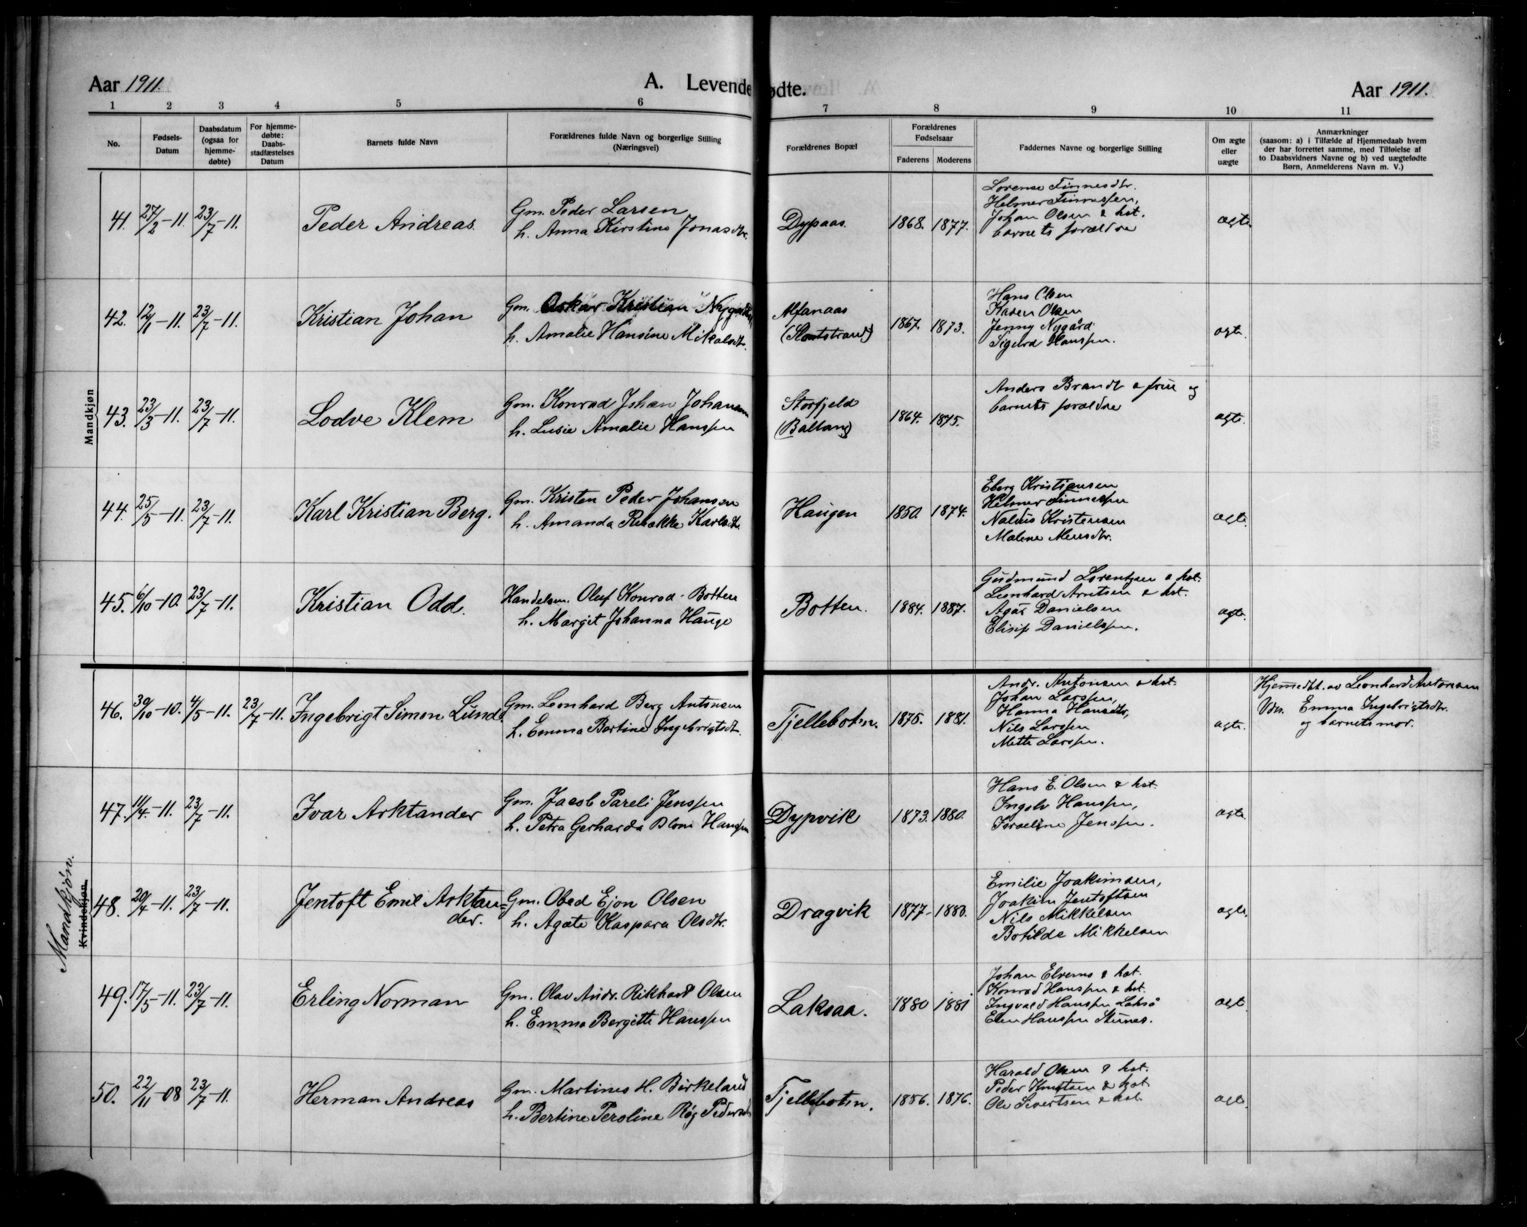 Aar 1911.
A. Levendefødte.
Aar 1911.
1 2 3 4 5 6 7 8 9 10 11
No.
Fødsels-
Datum
Daabsdatum
(ogsaa for
hjemme-
døbte)
For hjemme-
døbte:
Daabs-
stadfæstelses
Datum
Barnets fulde Navn
Forældrenes fulde Navn og borgerlige Stilling
(Næringsvei)
Forældrenes Bopæl
Forældrenes
Fødselsaar
Faderens Moderens
Faddernes Navne og borgerlige Stilling
Om ægte
eller
uægte
Anmærkninger
(saasom: a) i Tilfælde af Hjemmedaab hvem
der har forrettet samme, med Tilføielse af
to Daabsvidners Navne og b) ved uægtefødte
Børn, Anmelderens Navn m. V.)
Mandkjøn
41. 27/2-11. 23/7-11. Peder Andreas.
Gm. Peder Larsen
h. Anna Kirstine Jonasdtr.
Dypaas. 1868. 1877.
Lorense Finnesdtr.
Helmer Finnessen,
Johan Olsen & hst.
barnets forældre
ægte.
42. 12/1-11. 23/7-11. Kristian Johan
Gm. Oskar Kristian Nygård
h. Amalie Hansine Mikalsdtr.
Alfanaas
1867. 1873.
Hans Olsen
Karen Olsen
Jenny Nygård
Sigurd Hanssen.
ægte.
43. 23/3-11. 23/7-11. Lodve Klem
Gm. Konrad Johan Johansen
h. Lusie Amalie Hanssen
Storfjeld
(Ballang)
1864. 1875.
Anders Brandt & frue og
barnets forældre
ægte.
44. 25/5-11. 23/7-11. Karl Kristian Berg.
Gm. Kristen Peder Johansen
h. Amanda Rebakka Karlsdtr.
Haugen 1850. 1874.
Eberg Kristiansen
Helmer Finnessen
Nalius Kristensen
Malene Mensdtr.
ægte.
45. 6/10-10. 23/7-11. Kristian Odd.
Handelsm. Oluf Konrad Botten
h. Margit Johanna Hauge
Botten. 1884. 1887.
Gudmund Lorentzen & hst.
Leonhard Arntsen & hst.
Agås Danielsen
Elisif Danielssen.
ægte.
Kvindekjøn
Mandkjøn.
46. 30/10-10. 4/5-11. 23/7-11. Ingebrigt Simon Lund
Gm. Leonhard Berg Antonsen
h. Emma Bertine Ingebrigtsdt.
Tjellebotn. 1875. 1881.
Andr. Antonsen & hst.
Johan Larssen,
Hanna Hansdtr,
Nils Larssen
Mette Larssen.
ægte.
Hjemmedbt. av Leonhard Antonsen
Vdn. Emma Ingebrigtsdtr.
og barnets mor.
47. 11/4-11. 23/7-11. Ivar Arktander
Gm. Jacob Pareli Jenssen
h. Petra Gerharda Hanssen
Dypvik 1873. 1880.
Hans E. Olsen & hst.
Ingelv Hanssen,
Israeline Jenssen.
ægte.
48. 20/4-11. 23/7-11. Jentoft Emil Arktan-
der.
Gm. Obed Ejon Olsen
h. Agate Kaspara Olsdtr.
Dragvik 1877. 1880.
Emilie Joakimsen,
Joakim Jentoftsen
Nils Mikkelsen
Botilde Mikkelsen
ægte.
49. 17/5-11. 23/7-11. Erling Norman
Gm. Olav Andr. Rikhard Olsen
h. Emma Bergitte Hanssen
Laksaa. 1880 1881
Johan Elvenes & hst.
Konrad Hanssen & hst.
Ingvald Hanssen Lakså
Elen Hanssen Stunes.
ægt.
50. 22/11-08 23/7-11. Herman Andreas
Gm. Martines H. Birkeland
h. Bertine Peroline Røg Pedersdtr
Tjellebotn. 1886. 1876.
Harald Olsen & hst.
Peder Knutsen & hst.
Ole Sivertsen & hst.
ægt.